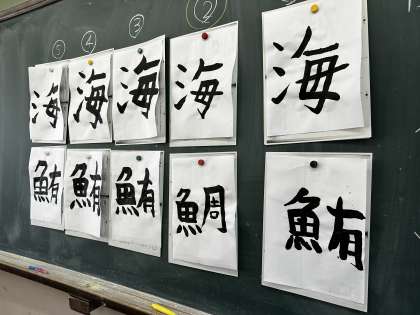 ⑤ ④ ③ ②
海 海 海 海 海
鮪 鮪 鮪 鯛 鮪